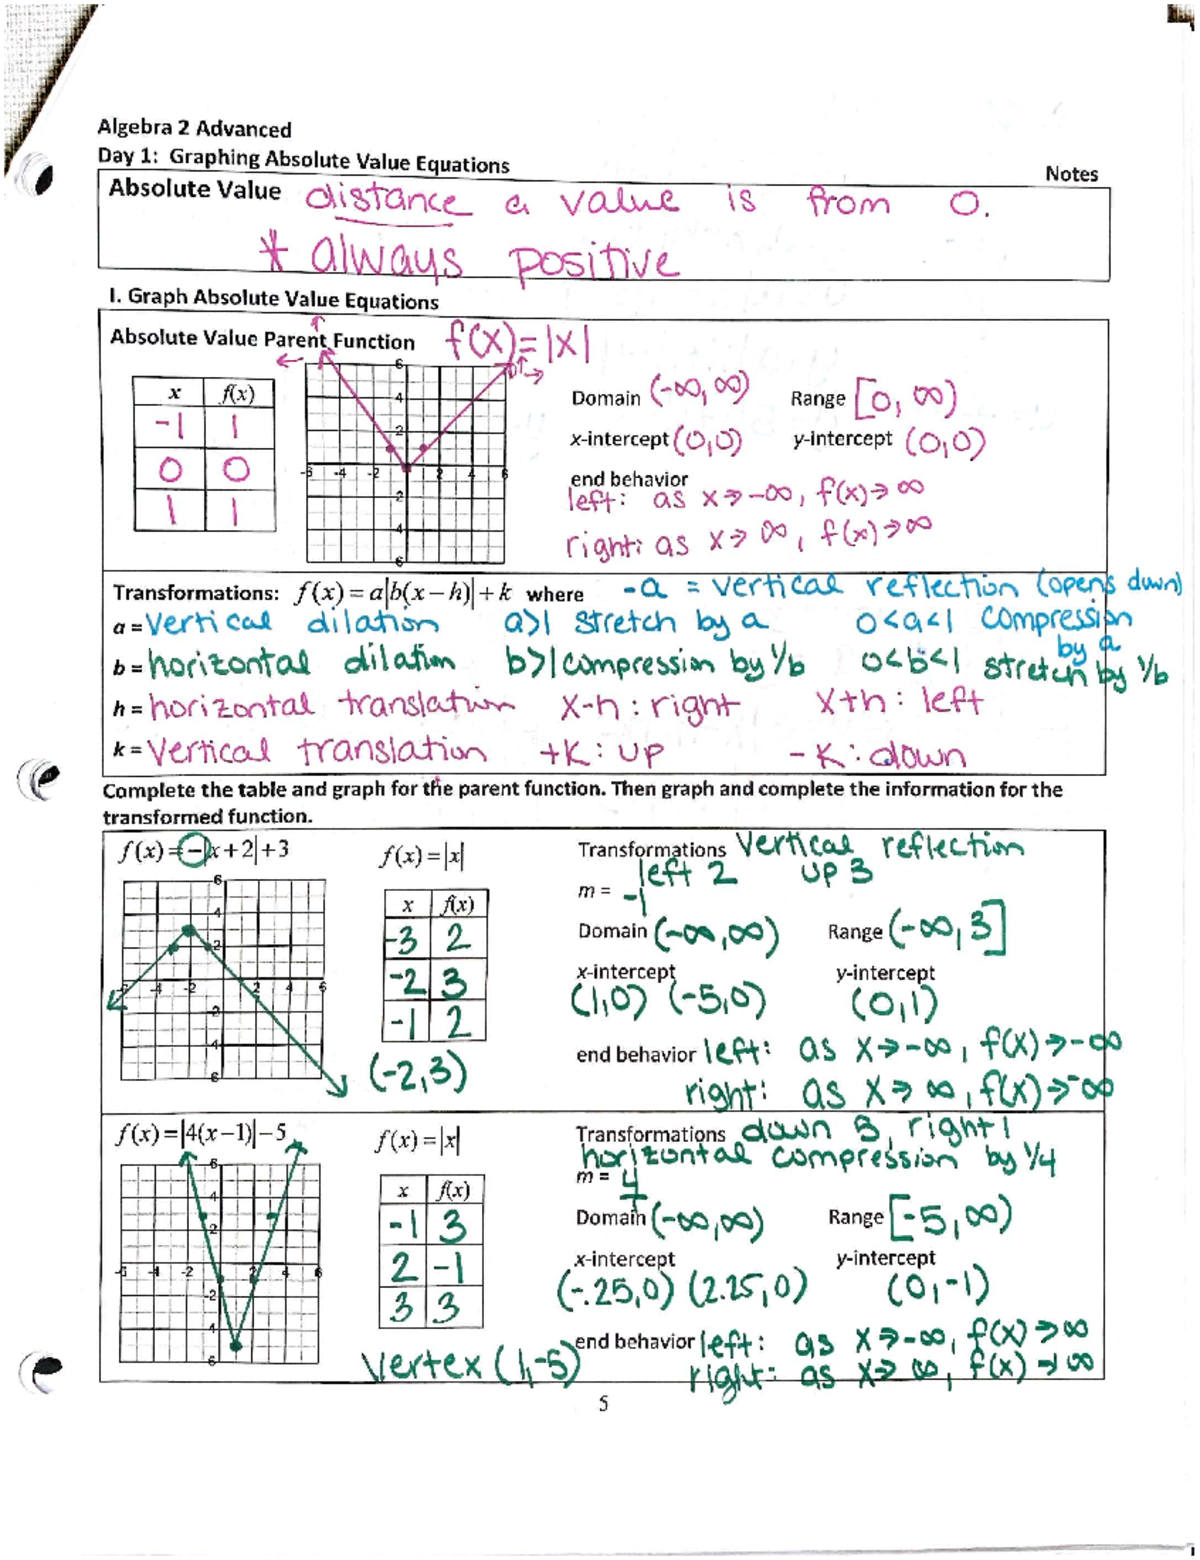 Algebra 2 Advanced
Day 1: Graphing Absolute Value Equations
Notes
Absolute Value distance a value is from 0.
* always positive
I. Graph Absolute Value Equations
Absolute Value Parent Function f(x)=|x|
x f(x)
-1 1
0 0
1 1
6
4
2
-6 -4 -2 2 4 6
-2
4
6
Domain (-∞, ∞) Range [0, ∞)
x-intercept (0,0) y-intercept (0,0)
end behavior
left: as x→-∞, f(x)→∞
right: as x→∞, f(x)→∞
Transformations: f(x)=a|b(x-h)|+k where -a = vertical reflection (opens down)
a = vertical dilation a>1 stretch by a 0<a<1 compression by a
b = horizontal dilation b>1 compression by 1/b 0<b<1 stretch by 1/b
h = horizontal translation x-h: right x+h: left
k = vertical translation +k: up -k: down
Complete the table and graph for the parent function. Then graph and complete the information for the
transformed function.
f(x)=-|x+2|+3
f(x)=|x|
x f(x)
-3 2
-2 3
-1 2
(-2,3)
Transformations vertical reflection
left 2 up 3
m = -1
Domain (-∞,∞) Range (-∞,3]
x-intercept y-intercept
(1,0) (-5,0) (0,1)
end behavior left: as x→-∞, f(x)→-∞
right: as x→∞, f(x)→-∞
f(x)=|4(x-1)|-5
f(x)=|x|
x f(x)
-1 3
2 -1
3 3
vertex (1,-5)
Transformations down 5, right 1
horizontal compression by 1/4
m = 4
Domain (-∞,∞) Range [-5,∞)
x-intercept y-intercept
(-.25,0) (2.25,0) (0,-1)
end behavior left: as x→-∞, f(x)→∞
right: as x→∞, f(x)→∞
5